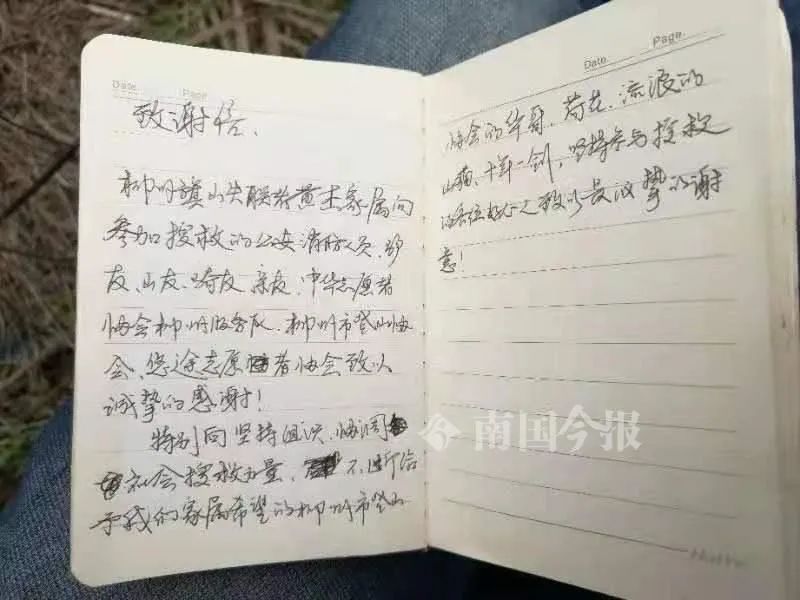 Date.   Page.
致谢信、
柳州旗山失联者黄土家属向
参加搜救的公安消防人员、驴
友、山友、骑友、亲友、中华志愿者
协会柳州服务队、柳州市登山协
会、悠途志愿者协会致以
诚挚的感谢!
特别向坚持组织、协调
社会搜救力量、不断给
予我们家属希望的柳州市登山
Date.   Page.
协会的华哥、荷花、流浪的
山猫、十年一剑,坚持参与搜救
的各位好心人致以最诚挚的谢
意!
南国今报